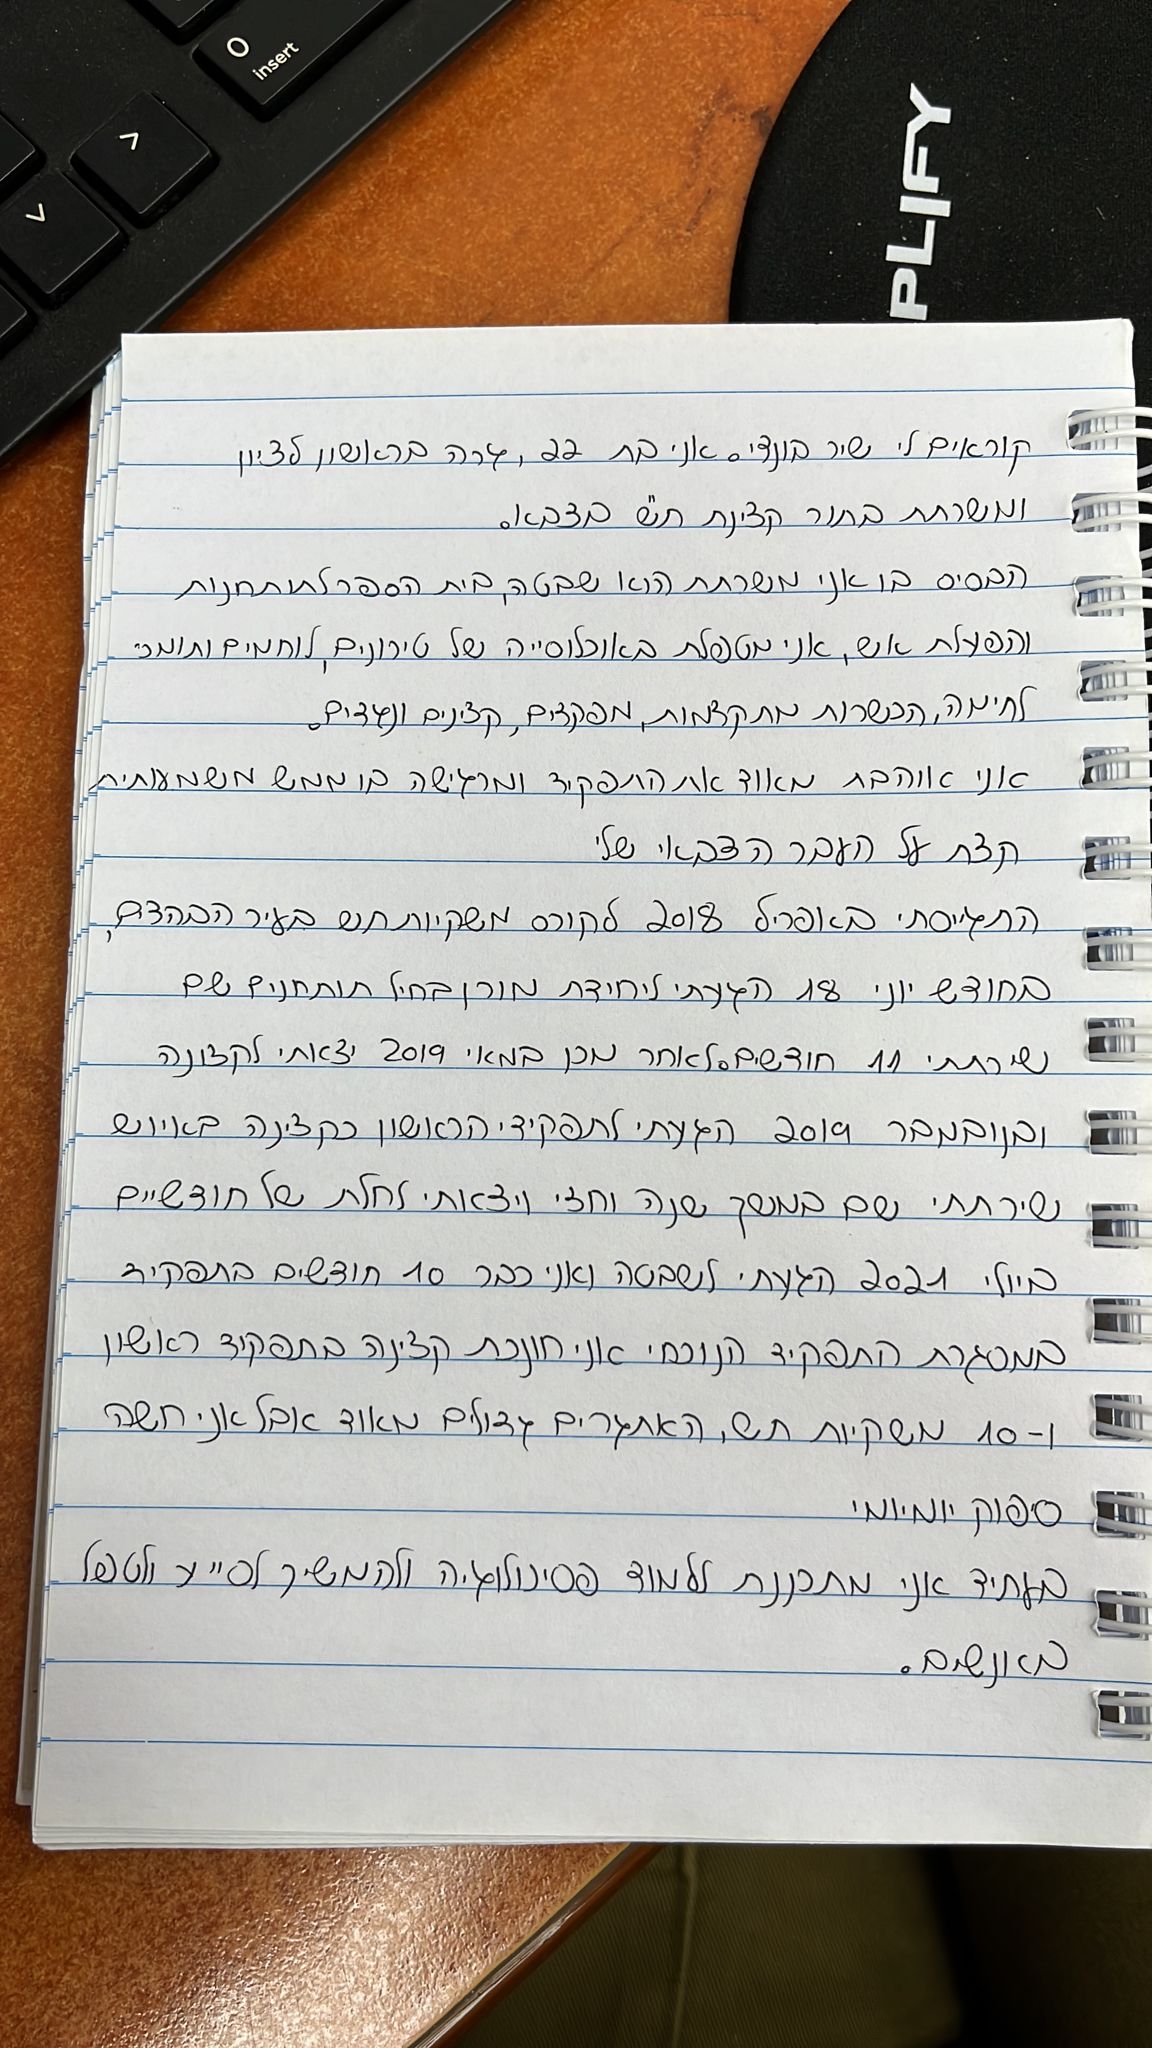 0
insert
>
<
PLIFY
קוראים לי שיר בונדי. אני בת 22, גרה בראשון לציון
ומשרתת בתור קצינת ת"ש בצבא.
הבסיס בו אני משרתת הוא שבטה, בית הספר לתותחנות
והפעלת אש, אני מטפלת באוכלוסייה של טירונים, לוחמים ותומכי
לחימה, הכשרות מתקדמות, מפקדים, קצינים ונגדים.
אני אוהבת מאוד את התפקיד ומרגישה בו ממש משמעותית
קצת על העבר הצבאי שלי
התגייסתי באפריל 2018 לקורס משקיות תש בעיר הבהדים,
בחודש יוני 18 הגעתי ליחידת מורן בחיל תותחנים שם
שירתתי 11 חודשים. לאחר מכן במאי 2019 יצאתי לקצונה
ובנובמבר 2019 הגעתי לתפקידי הראשון כקצינה באיוש
שירתתי שם במשך שנה וחצי ויצאתי לחלת של חודשיים
ביולי 2021 הגעתי לשבטה ואני כבר 10 חודשים בתפקיד
במסגרת התפקיד הנוכחי אני חונכת קצינה בתפקיד ראשון
ו-10 משקיות תש, האתגרים גדולים מאוד אבל אני חשה
סיפוק יומיומי
בעתיד אני מתכננת ללמוד פסיכולוגיה ולהמשיך לסייע ולטפל
באנשים.